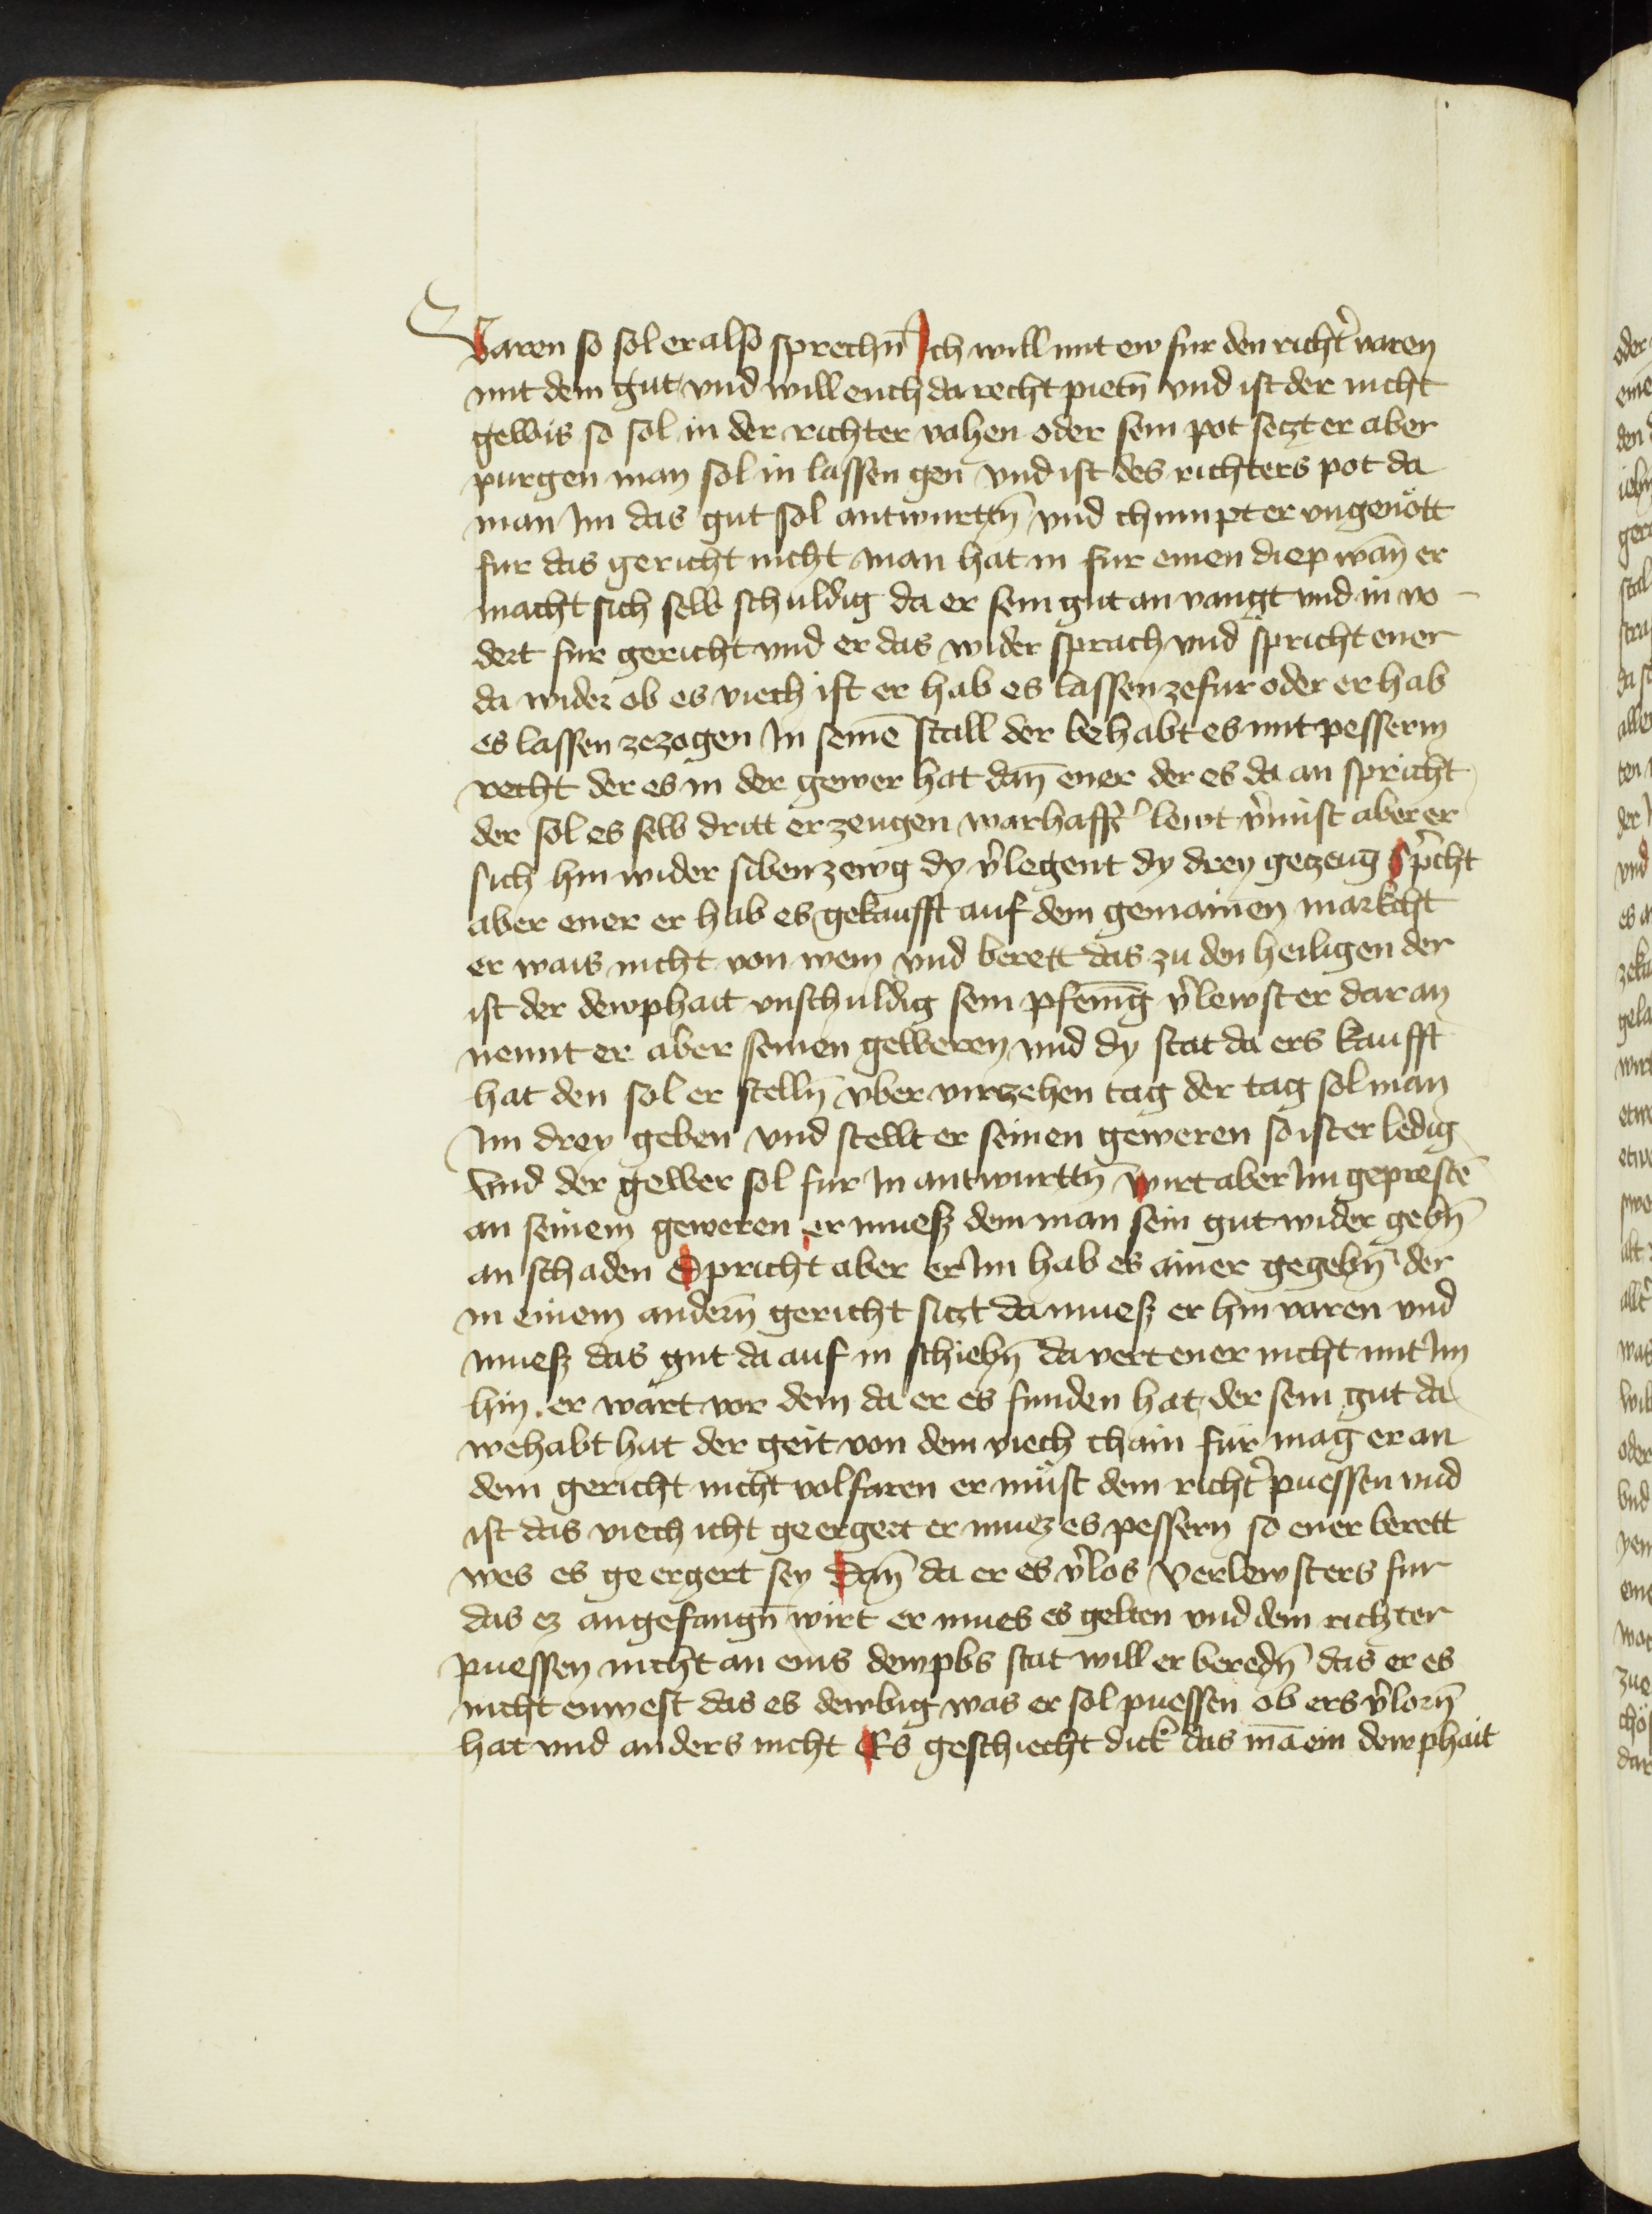 Varen so sol er also sprechn̄ Ich will mit ew fur den richt̾ varen
mit dem gut vnd will euch da recht pietn̄ vnd ist der nicht
gewis so sol in der richter vahen oder sein pot setzt er aber
purgen man sol in lassen gen vnd ist des richters pot da
man Im das gut sol antwurttn̄ vnd chumpt er vngenött
fur das gericht nicht man hat in fur einen diep wan̄ er
macht sich selb schuldig da er sein gut an vangt vnd in vo-
dert fur gericht vnd er das wider sprach vnd spricht ener
da wider ob es viech ist er hab es lassen ze fur oder er hab
es lassen ze zogen In seinē stall der behabt es mit pesserm
recht der es in der gewer hat dan̄ ener der es da an spricht
der sol es selb dritt erzeugen warhafft̾ lewt v̾mist aber er
sich hin wider siben zewg dy v̾legent dy drey getzeug Sp̾cht
aber ener er hab es gekaufft auf dem gemainen markcht
er wais nicht von wem vnd berett das zu den heiligen der
ist der dewphait vnschuldig sein pfenīg v̾lewst er dar an
nennt er aber seinen geweren vnd dy stat da ers kaufft
hat den sol er stelln̄ vber virczehen tag der tag sol man
Im drey geben vnd stellt er seinen geweren so ist er ledig
Vnd der gewer sol fur In antwurttn̄ Wirt aber Im geprestē
an seinem geweren er muesz dem man sein gut wider gebn̄
an schaden Spricht aber er Im hab es ainer gegebn̄ der
in einem andern̄ gericht sitzt da muesz er hin varen vnd
muesz das gut da auf in schiebn̄ da vert ener nicht mit Im
hin er wart vor dem da er es funden hat der sein gut da
wehabt hat der geit von dem viech chain für mag er an
dem gericht nicht volfaren er müst dem richt̾ puessen vnd
ist das viech icht ge ergert er muez es pessern so ener berett
wes es ge ergert sey Dan̄ da er es v̾los Verlewsters fur
das ez angefangn̄ wirt er mues es gelten vnd dem richter
puessen nicht an eins dewpbs stat will er beredn̄ das er es
nicht enwest das es dewbig was er sol puessen ob ers v̾lorn̄
hat vnd anders nicht Es geschiecht dick das mā ein dewphait